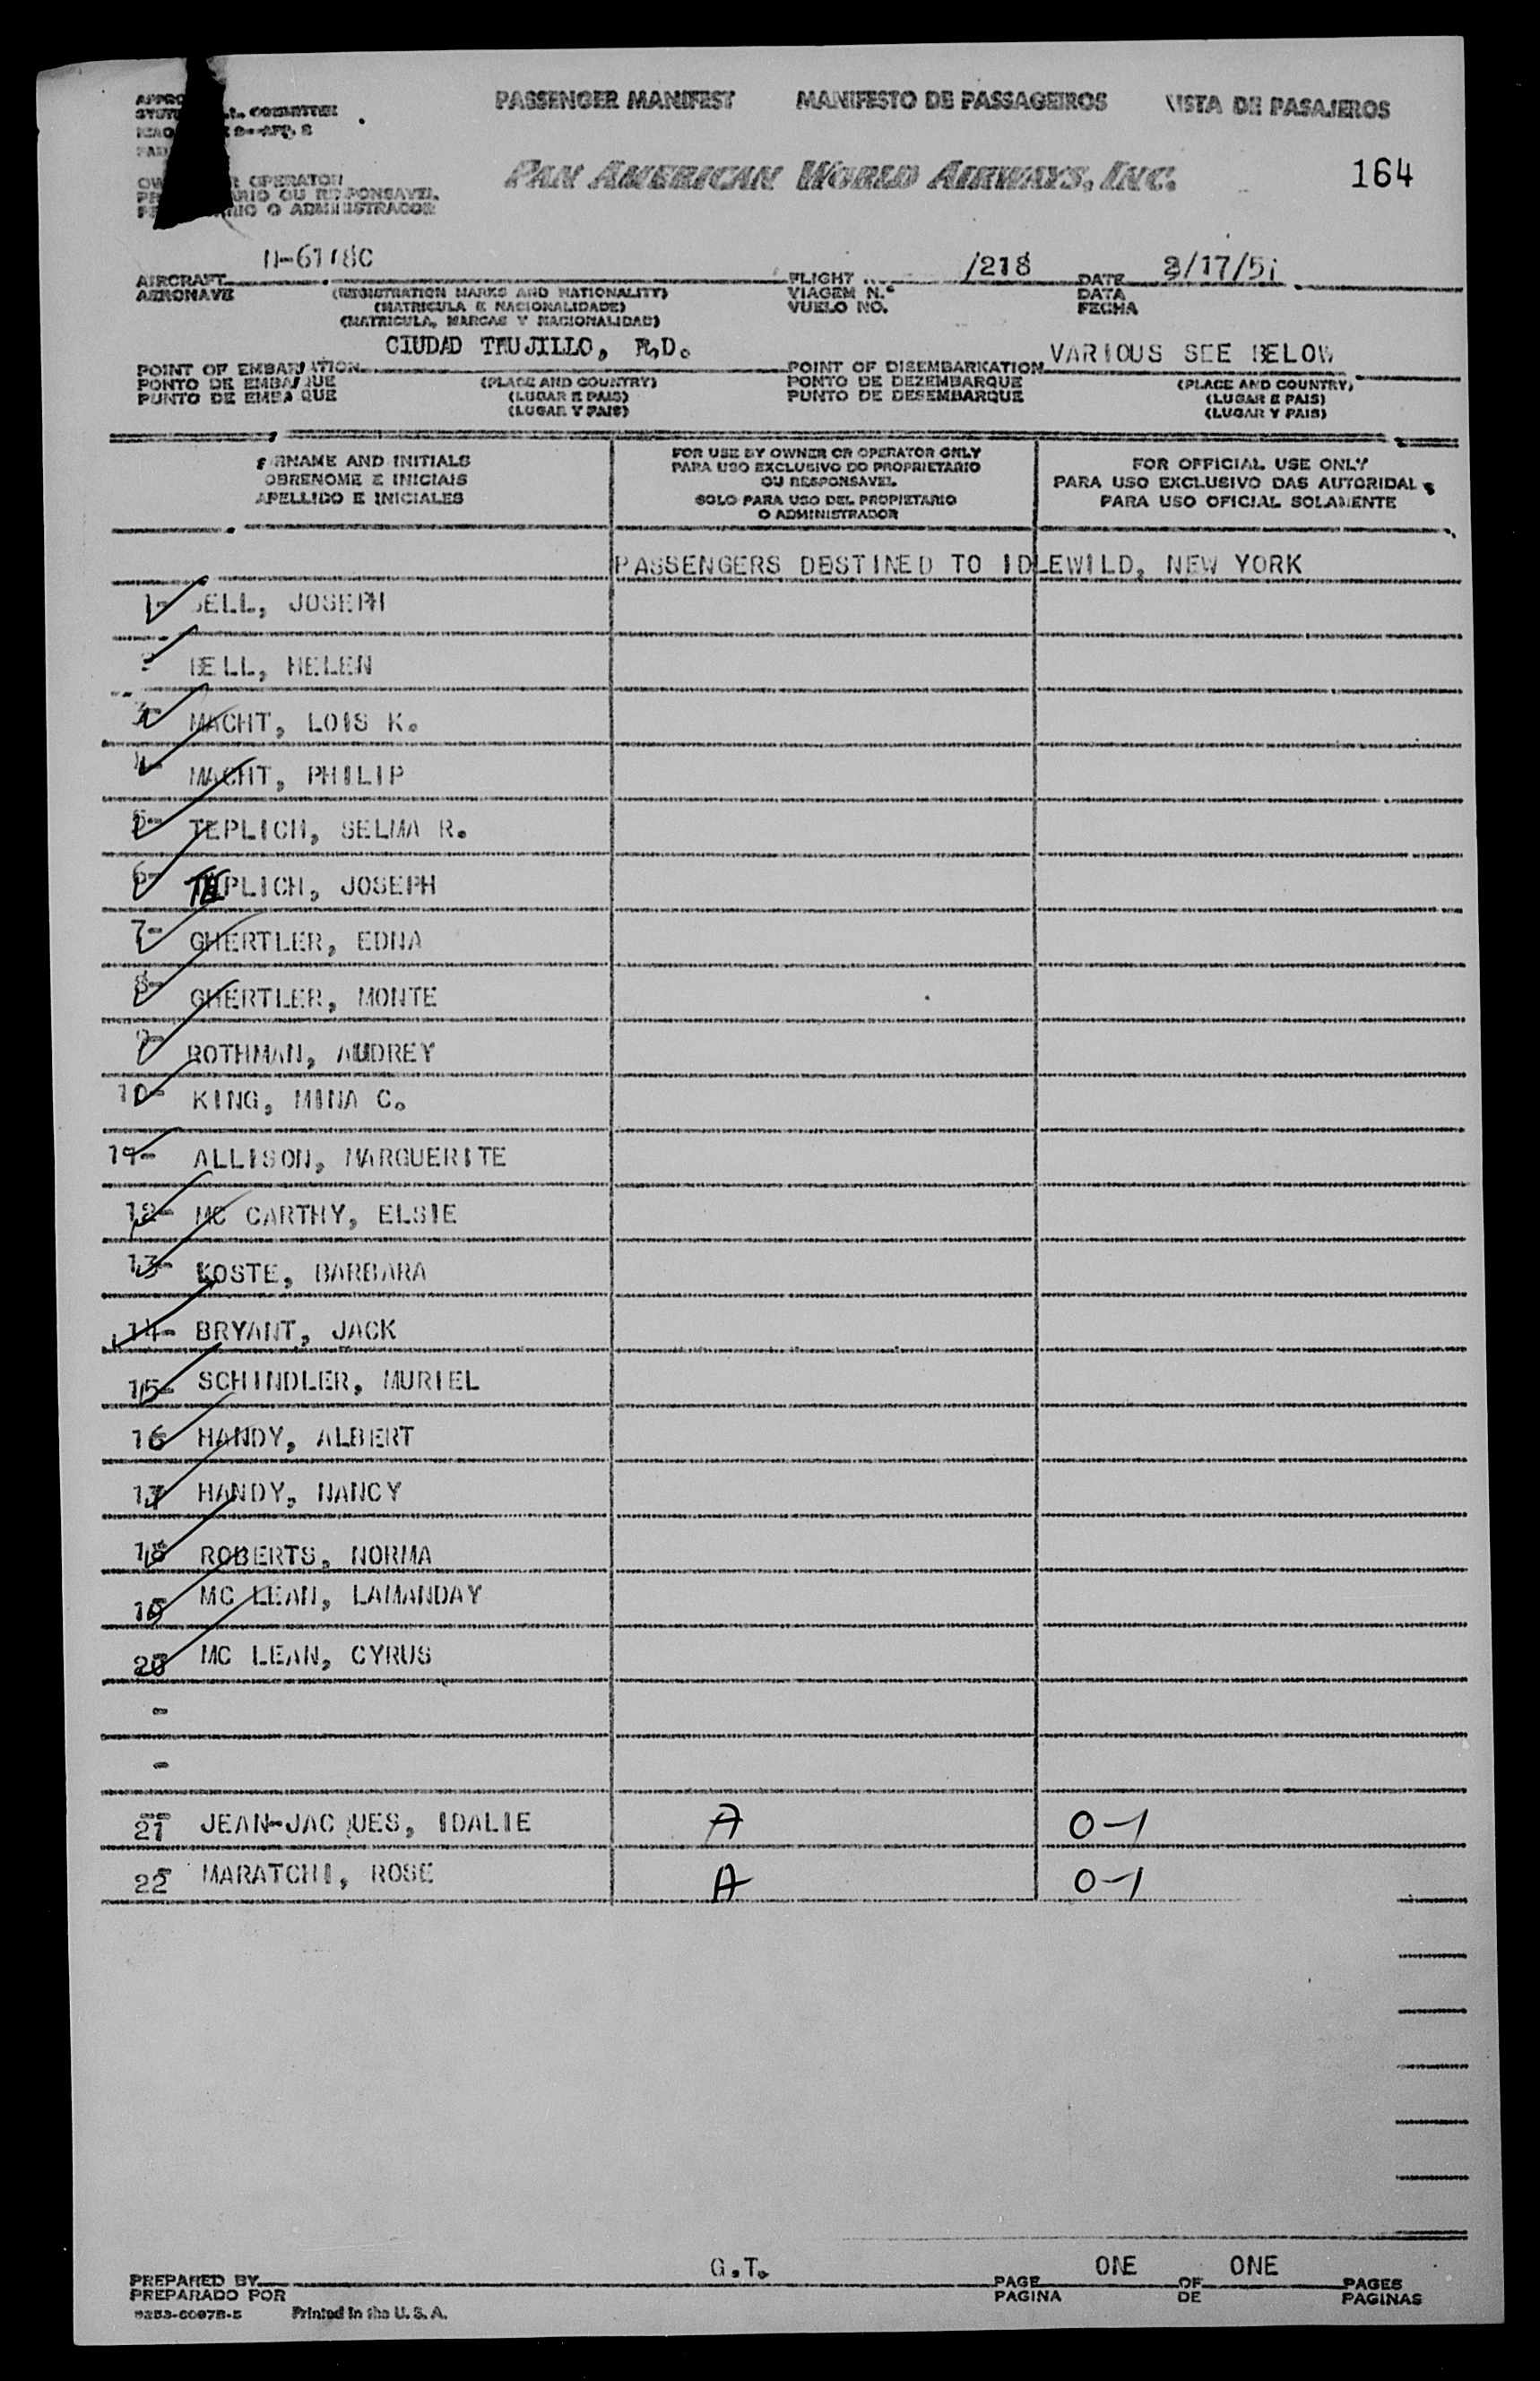 PASSENGER MANIFEST MANIFESTO DE PASSAGEIROS LISTA DE PASAJEROS
PAN AMERICAN WORLD AIRWAYS, INC. 164
OPERATOR
OU RESPONSAVEL
O ADMINISTRADOR
AIRCRAFT
AERONAVE
(REGISTRATION MARKS AND NATIONALITY)
(MATRICULA E NACIONALIDADE)
(MATRICULA, MARCAS Y NACIONALIDAD)
FLIGHT /218
VIAGEM N.º
VUELO NO.
DATE /17/51
DATA
FECHA
CIUDAD TRUJILLO, R.D.
POINT OF EMBARKATION
PONTO DE EMBARQUE
PUNTO DE EMBARQUE
(PLACE AND COUNTRY)
(LUGAR E PAIS)
(LUGAR Y PAIS)
VARIOUS SEE BELOW
POINT OF DISEMBARKATION
PONTO DE DEZEMBARQUE
PUNTO DE DESEMBARQUE
(PLACE AND COUNTRY)
(LUGAR E PAIS)
(LUGAR Y PAIS)
SURNAME AND INITIALS
SOBRENOME E INICIAIS
APELLIDO E INICIALES
FOR USE BY OWNER OR OPERATOR ONLY
PARA USO EXCLUSIVO DO PROPRIETARIO
OU RESPONSAVEL
SOLO PARA USO DEL PROPIETARIO
O ADMINISTRADOR
FOR OFFICIAL USE ONLY
PARA USO EXCLUSIVO DAS AUTORIDADES
PARA USO OFICIAL SOLAMENTE
PASSENGERS DESTINED TO IDLEWILD, NEW YORK
1- BELL, JOSEPH
2 BELL, HELEN
3- MACHT, LOIS K.
4- MACHT, PHILIP
5- TEPLICH, SELMA R.
6- TEPLICH, JOSEPH
7- GHERTLER, EDNA
8- GHERTLER, MONTE
9- ROTHMAN, AUDREY
10- KING, MINA C.
11- ALLISON, MARGUERITE
12- MC CARTHY, ELSIE
13- KOSTE, BARBARA
14- BRYANT, JACK
15- SCHINDLER, MURIEL
16 HANDY, ALBERT
17 HANDY, NANCY
18 ROBERTS, NORMA
19 MC LEAN, LAMANDAY
20 MC LEAN, CYRUS
-
-
21 JEAN-JACQUES, IDALIE A 0-1
22 MARATCHI, ROSE A 0-1
G.T.
PREPARED BY
PREPARADO POR
PAGE ONE OF ONE PAGES
PAGINA DE PAGINAS
Printed in the U. S. A.